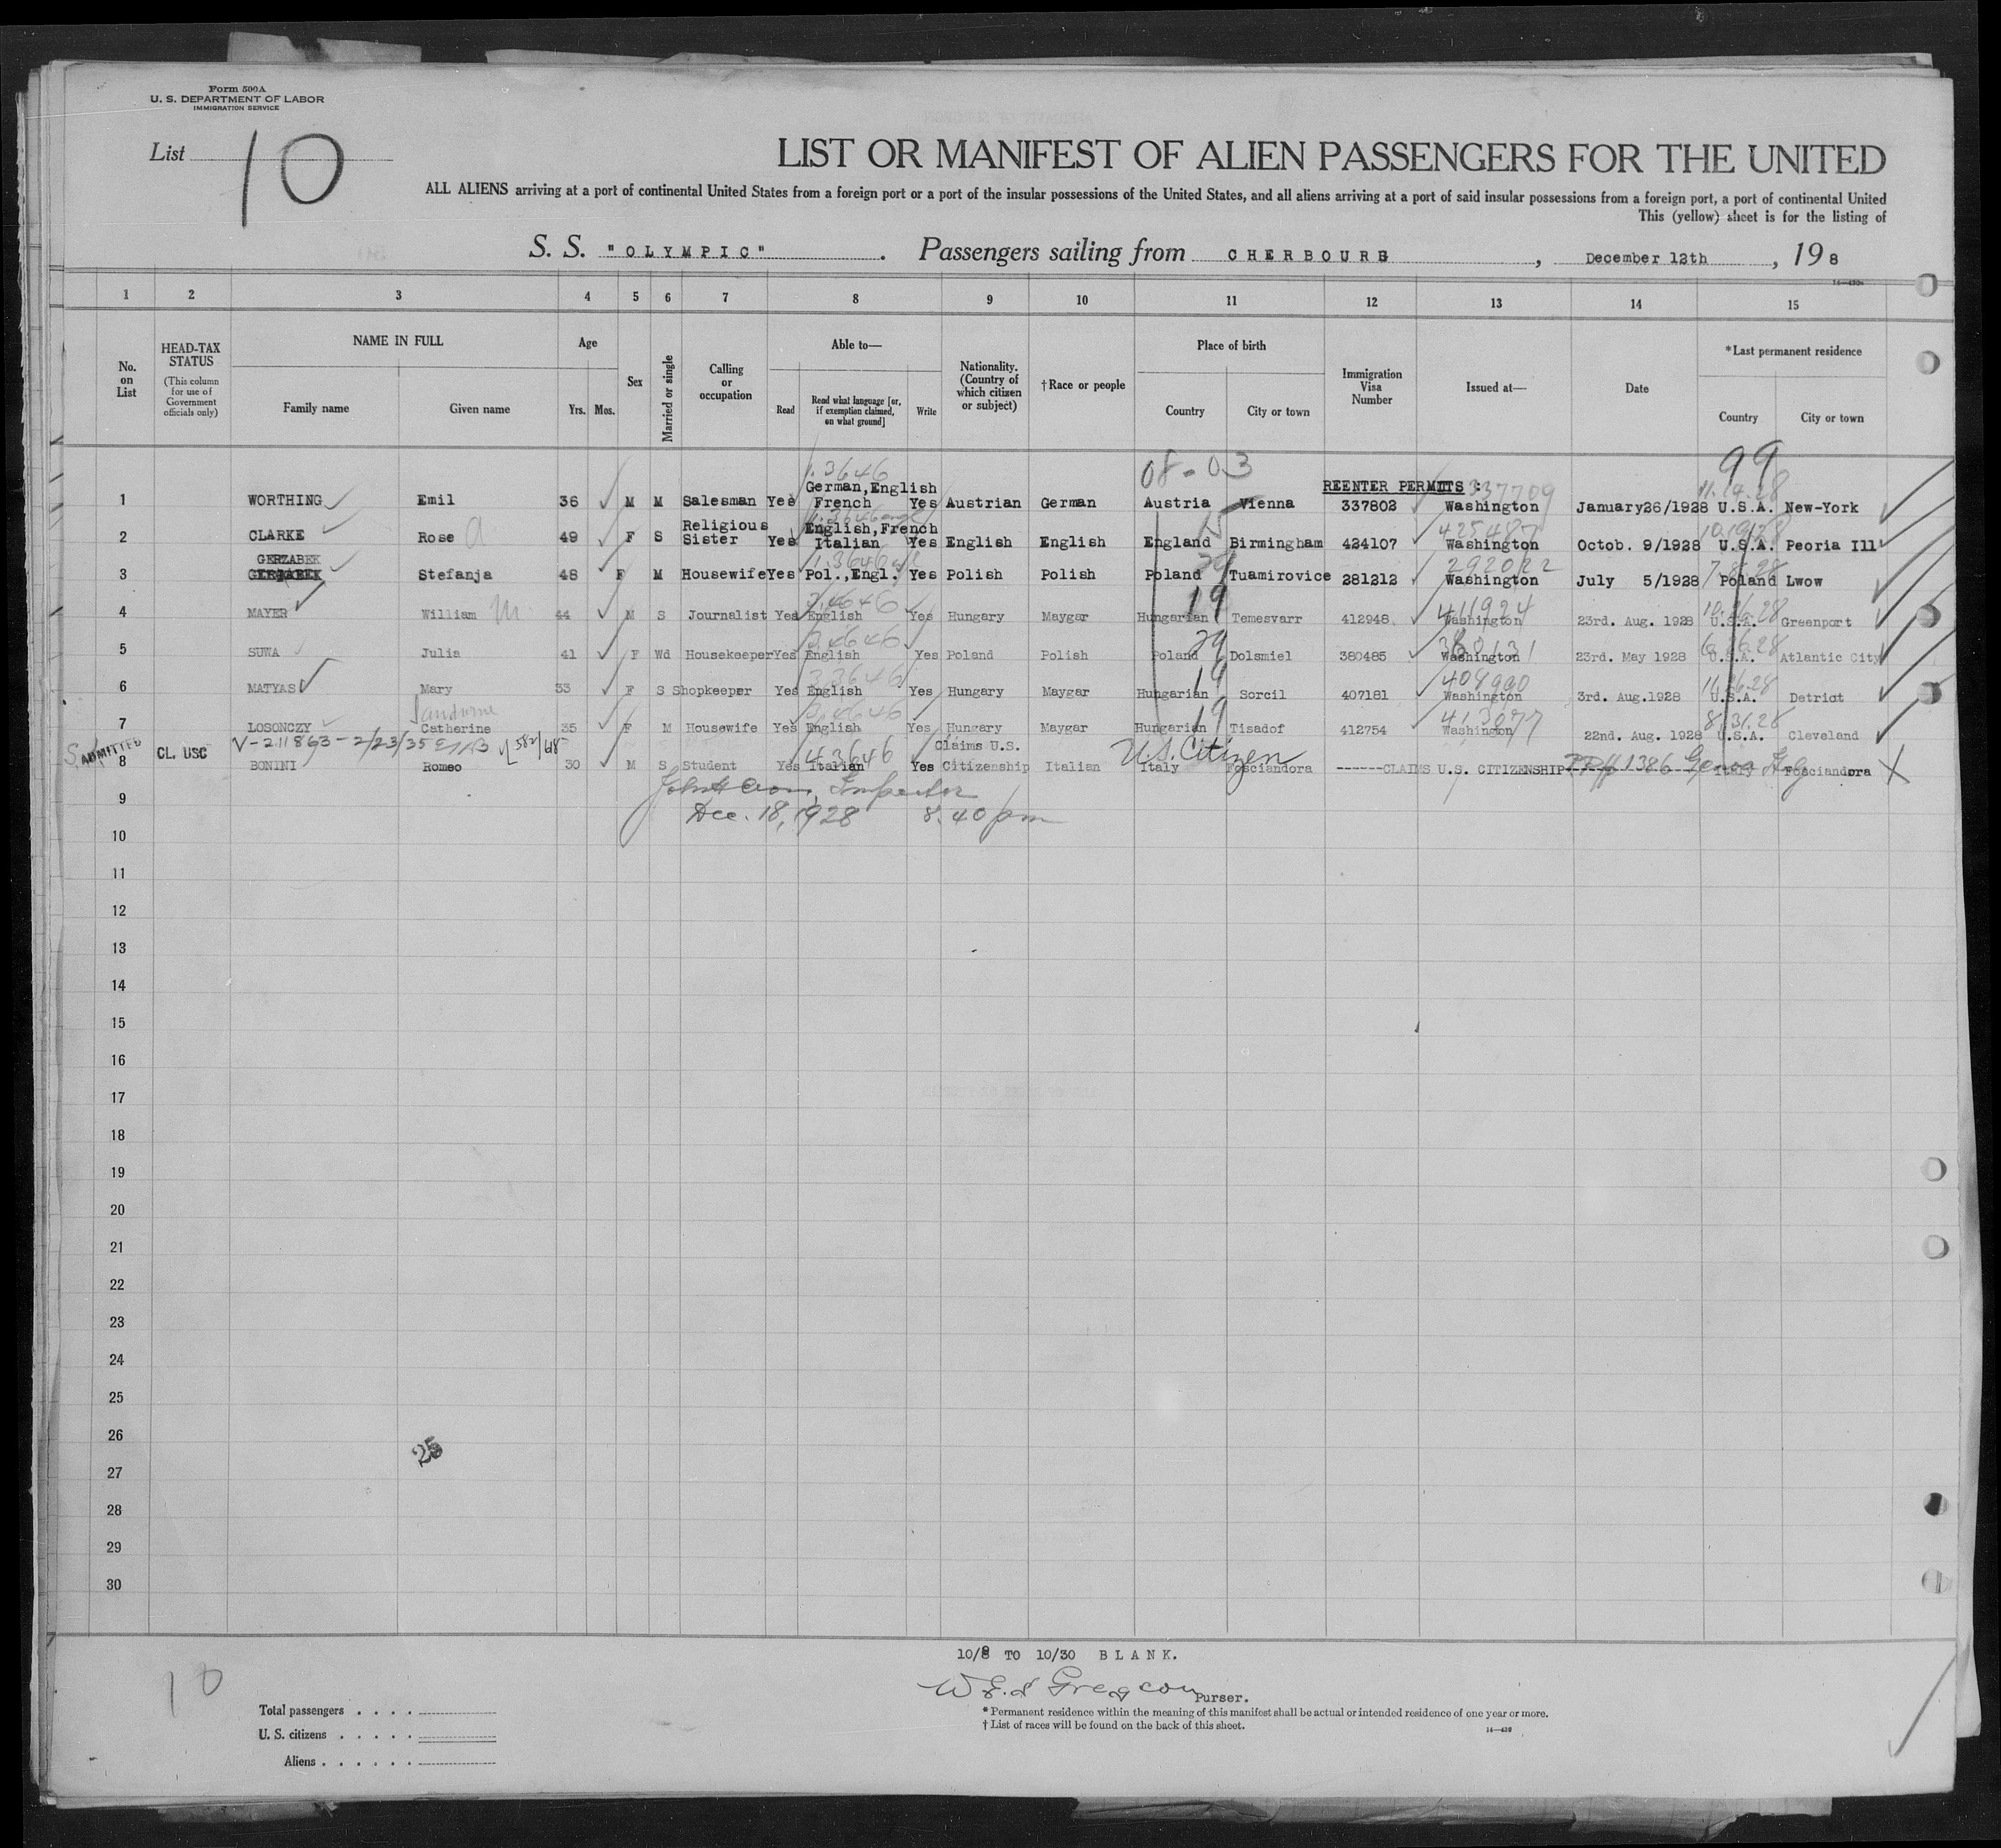 Form 500A
U. S. DEPARTMENT OF LABOR
IMMIGRATION SERVICE
List 10
LIST OR MANIFEST OF ALIEN PASSENGERS FOR THE UNITED
ALL ALIENS arriving at a port of continental United States from a foreign port or a port of the insular possessions of the United States, and all aliens arriving at a port of said insular possessions from a foreign port, a port of continental United
This (yellow) sheet is for the listing of
S. S. "OLYMPIC" . Passengers sailing from CHERBOURG , December 12th , 19 8
14—430a
1 2 3 4 5 6 7 8 9 10 11 12 13 14 15
No. on List
HEAD-TAX STATUS (This column for use of Government officials only)
NAME IN FULL
Family name Given name
Age
Yrs. Mos.
Sex
Married or single
Calling or occupation
Able to—
Read Read what language [or, if exemption claimed, on what ground] Write
Nationality. (Country of which citizen or subject)
† Race or people
Place of birth
Country City or town
Immigration Visa Number
Issued at—
Date
* Last permanent residence
Country City or town
1.3646 08-03 99
German,English REENTER PERMITS : 337709 11.14.28
1 WORTHING Emil 36 M M Salesman Yes French Yes Austrian German Austria Vienna 337802 Washington January26/1928 U.S.A. New-York
Religious English,French 425487 10.19.28
2 CLARKE Rose a 49 F S Sister Yes Italian Yes English English England Birmingham 424107 Washington Octob. 9/1928 U.S.A. Peoria Ill
GERZABEK 29 292022
3 GERZABEK Stefanja 48 F M Housewife Yes Pol.,Engl. Yes Polish Polish Poland Tuamirovice 281212 Washington July 5/1928 Poland Lwow
3.4646 19 411924 10.26.28
4 MAYER William M 44 M S Journalist Yes English Yes Hungary Maygar Hungarian Temesvarr 412948 Washington 23rd. Aug. 1928 U.S.A. Greenport
3.4646 29 380131 6.26.28
5 SUWA Julia 41 F Wd Housekeeper Yes English Yes Poland Polish Poland Dolsmiel 380485 Washington 23rd. May 1928 U.S.A. Atlantic City
3.3646 19 408990
6 MATYAS Mary 33 F S Shopkeeper Yes English Yes Hungary Maygar Hungarian Sorcil 407181 Washington 3rd. Aug.1928 U.S.A. Detriot
3.4646 19 413077 8.31.28
7 LOSONCZY Catherine 35 F M Housewife Yes English Yes Hungary Maygar Hungarian Tisadof 412754 Washington 22nd. Aug. 1928 U.S.A. Cleveland
ADMITTED CL. USC V-211863-2/23/35 43646 Claims U.S. U.S. Citizen
8 BONINI Romeo 30 M S Student Yes Italian Yes Citizenship Italian Italy Fosciandora ------CLAIMS U.S. CITIZENSHIP 1386 Genoa Italy Fosciandora X
Inspector
9 Dec. 18, 1928 8.40 pm
10
11
12
13
14
15
16
17
18
19
20
21
22
23
24
25
26
25
27
28
29
30
10/8 TO 10/30 BLANK.
10
Purser.
Total passengers . . . .
* Permanent residence within the meaning of this manifest shall be actual or intended residence of one year or more.
† List of races will be found on the back of this sheet. 14—430
U. S. citizens . . . . .
Aliens . . . . . .